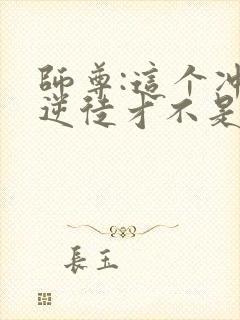 師尊:這个冲
逆徒才不是
長玉